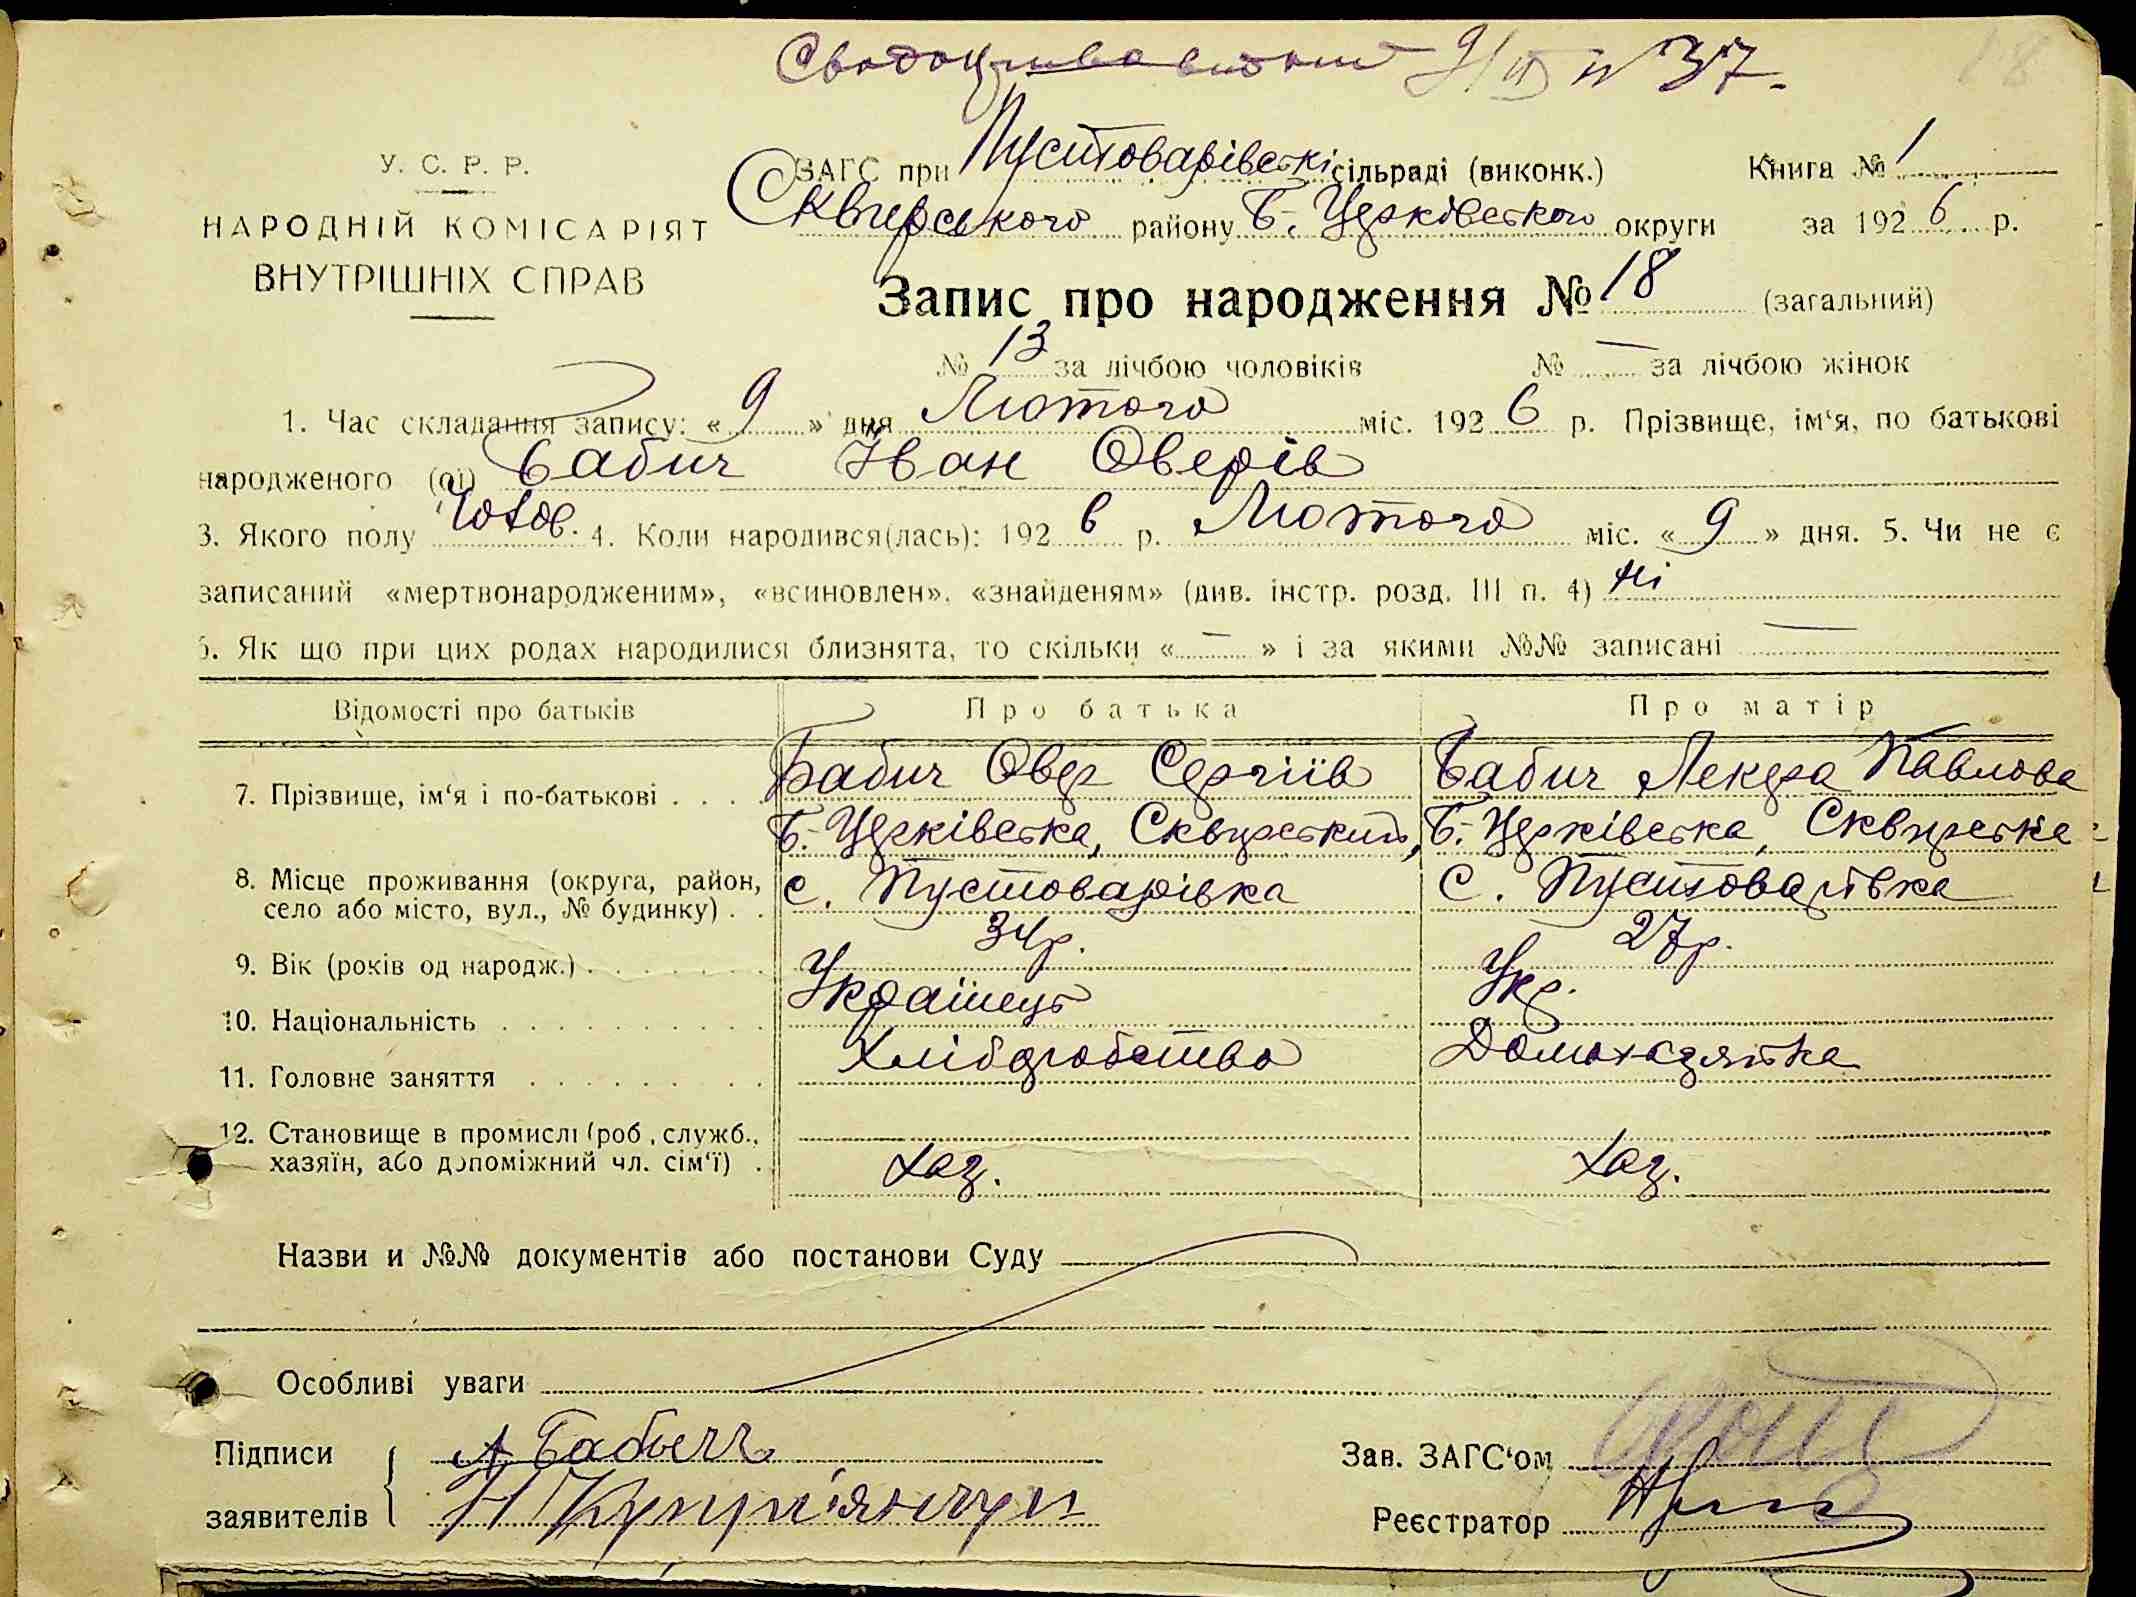 9/III № 37.
18
У. С. Р. Р.
НАРОДНІЙ КОМІСАРІЯТ
ВНУТРІШНІХ СПРАВ
ЗАГС при Пустоварівській сільраді (виконк.) Книга № 1
Сквирського району Б.-Церківського округи за 1926 р.
Запис про народження № 18 (загальний)
№ 13 за лічбою чоловіків № — за лічбою жінок
1. Час складання запису: «9» дня Лютого міс. 1926 р. Прізвище, ім‘я, по батькові
народженого (ої) Бабич Іван Оверів
3. Якого полу Чолов. 4. Коли народився(лась): 1926 р. Лютого міс. «9» дня. 5. Чи не є
записаний «мертвонародженим», «всиновлен», «знайденям» (див. інстр. розд. III п. 4) ні
6. Як що при цих родах народилися близнята, то скільки «—» і за якими №№ записані —
Відомості про батьків Про батька Про матір
7. Прізвище, ім‘я і по-батькові . . . . Бабич Овер Сергіїв Бабич Лекера Павлова
Б.-Церківська, Сквирський, Б.-Церківська, Сквирська
8. Місце проживання (округа, район,
село або місто, вул., № будинку) . . с. Пустоварівка с. Пустоварівка
9. Вік (років од народж.) . . . . . . . 34р. 27р.
10. Національність . . . . . . . . . . . Українець Укр.
11. Головне заняття . . . . . . . . . . Хліборобство Домохазяйка
12. Становище в промислі (роб., служб.,
хазяїн, або допоміжний чл. сім‘ї) . Хаз. Хаз.
Назви и №№ документів або постанови Суду
Особливі уваги
Підписи А Бабыч Зав. ЗАГС‘ом
заявителів Н Купріянчук Реєстратор